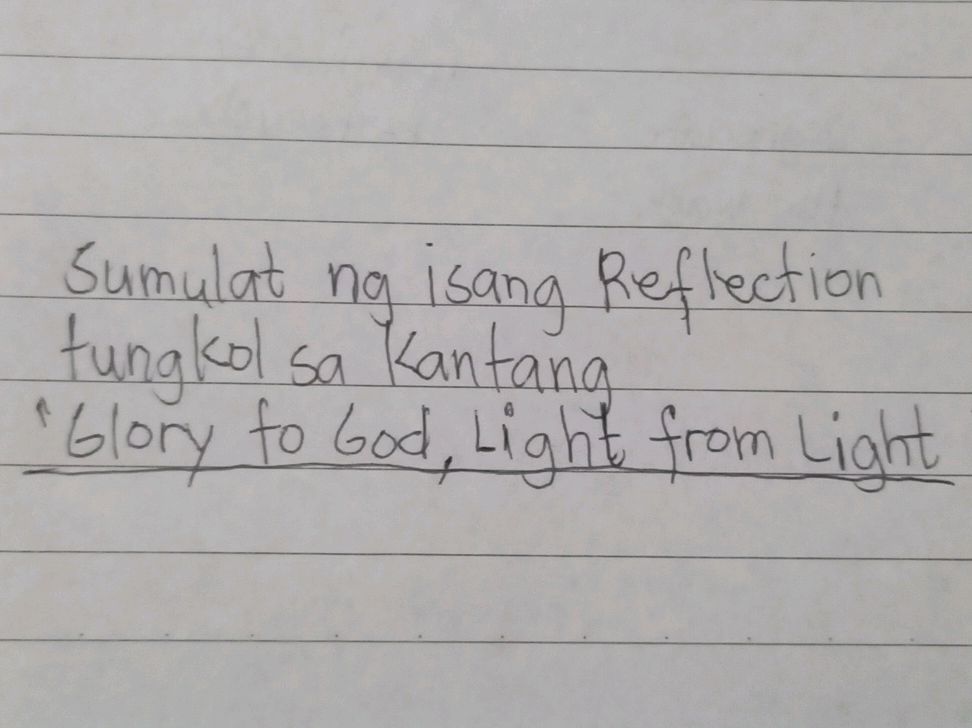 Sumulat ng isang Reflection
tungkol sa Kantang
'Glory to God, Light from Light